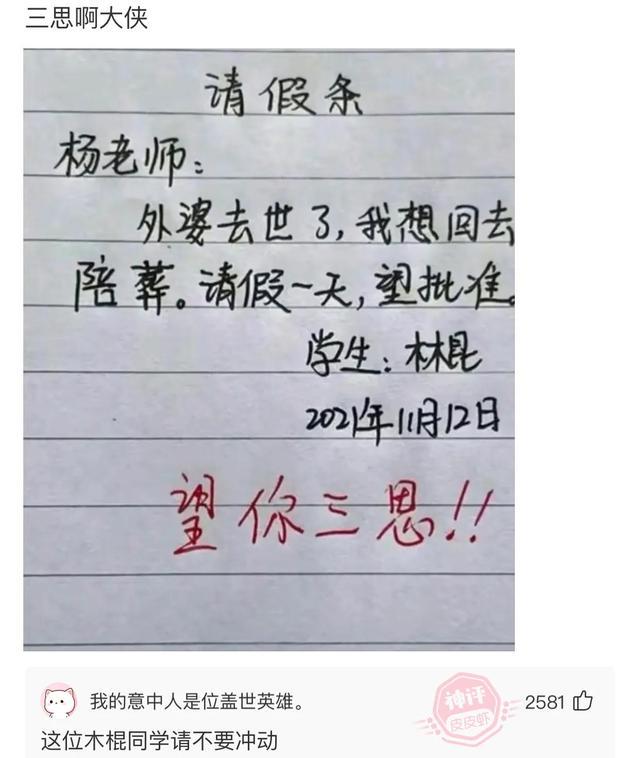 三思啊大侠
请假条
杨老师：
外婆去世了，我想回去
陪葬。请假一天，望批准。
学生：林昆
2021年11月12日
望你三思!!
我的意中人是位盖世英雄。
神评
皮皮虾
2581
这位木棍同学请不要冲动